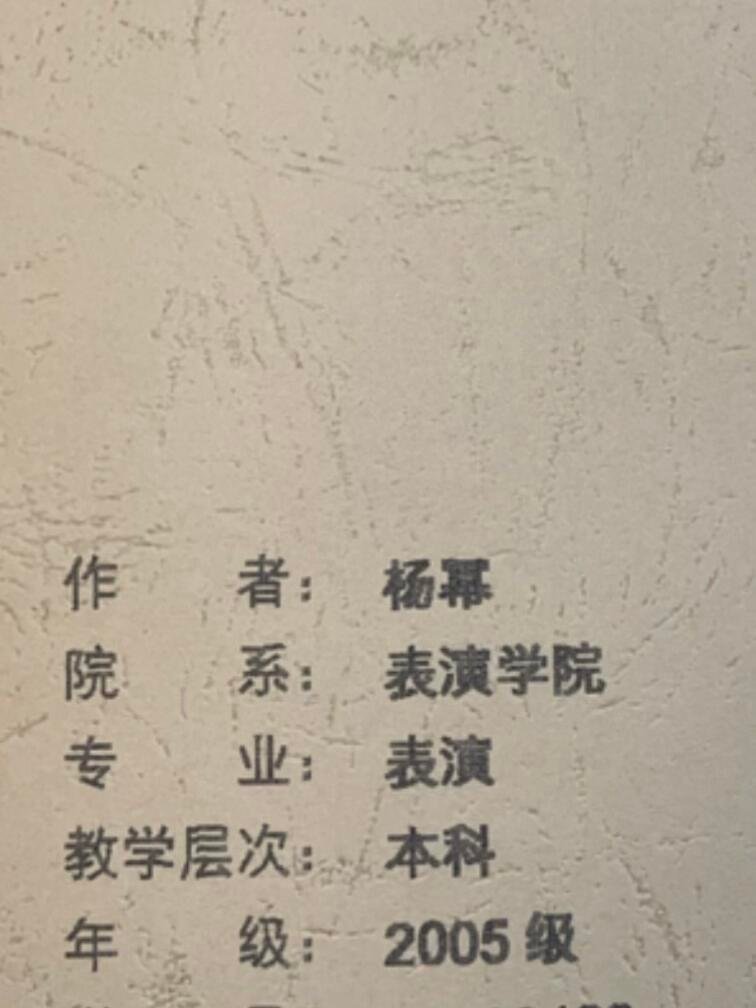 作 者： 杨幂
院 系： 表演学院
专 业： 表演
教学层次： 本科
年 级： 2005 级